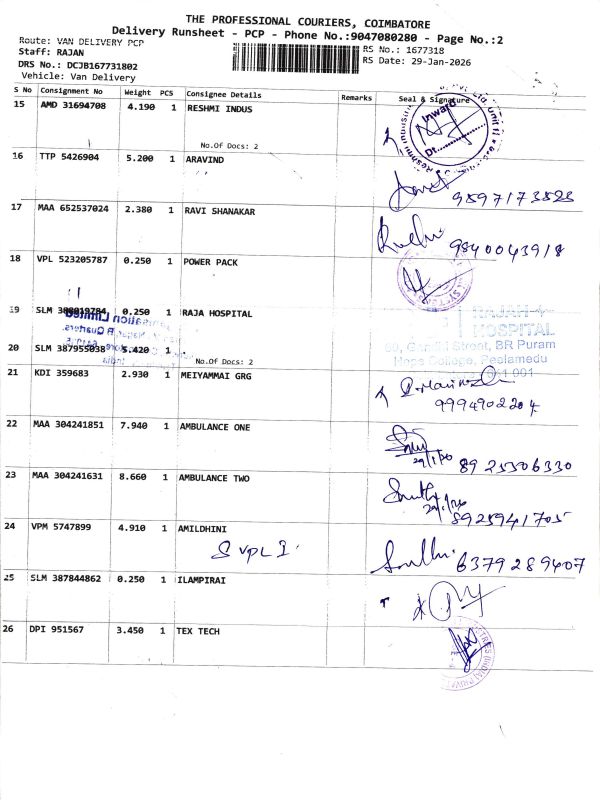 THE PROFESSIONAL COURIERS, COIMBATORE
Delivery Runsheet - PCP - Phone No.:9047080280 - Page No.:2
Route: VAN DELIVERY PCP
RS No.: 1677318
Staff: RAJAN
RS Date: 29-Jan-2026
DRS No.: DCJB167731802
Vehicle: Van Delivery
S No Consignment No Weight PCS Consignee Details Remarks Seal & Signature
15 AMD 31694708 4.190 1 RESHMI INDUS
Inward
Dt.
No.Of Docs: 2
16 TTP 5426904 5.200 1 ARAVIND
9597173523
17 MAA 652537024 2.380 1 RAVI SHANAKAR
9840043918
18 VPL 523205787 0.250 1 POWER PACK
19 SLM 388019784 0.250 1 RAJA HOSPITAL
RAJAH
HOSPITAL
Street, BR Puram
Hope College, Peelamedu
20 SLM 387955038 5.420 1
No.Of Docs: 2
21 KDI 359683 2.930 1 MEIYAMMAI GRG
9994902204
22 MAA 304241851 7.940 1 AMBULANCE ONE
8925506330
23 MAA 304241631 8.660 1 AMBULANCE TWO
8925941705
24 VPM 5747899 4.910 1 AMILDHINI
6379289407
25 SLM 387844862 0.250 1 ILAMPIRAI
26 DPI 951567 3.450 1 TEX TECH